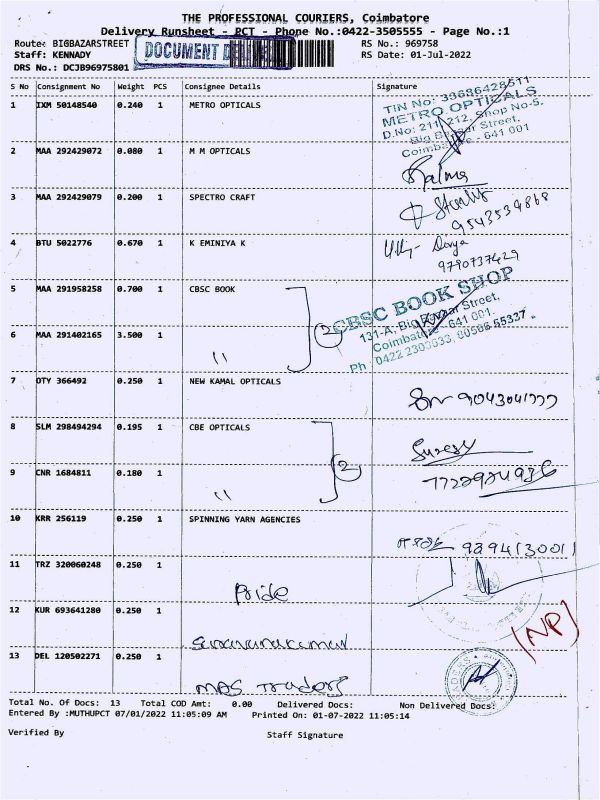 THE PROFESSIONAL COURIERS, Coimbatore
Delivery Runsheet - PCT - Phone No.:0422-3505555 - Page No.:1
Route: BIGBAZARSTREET RS No.: 969758
Staff: KENNADY DOCUMENT RS Date: 01-Jul-2022
DRS No.: DCJB96975801
S No Consignment No Weight PCS Consignee Details Signature
1 IXM 50148540 0.240 1 METRO OPTICALS
TIN No: 33686428511
METRO OPTICALS
D.No: 211, 212, Shop No-5,
Big Bazaar Street,
Coimbatore - 641 001
2 MAA 292429072 0.080 1 M M OPTICALS
3 MAA 292429079 0.200 1 SPECTRO CRAFT
9543539868
4 BTU 5022776 0.670 1 K EMINIYA K
Divya
9790737429
5 MAA 291958258 0.700 1 CBSC BOOK
CBSC BOOK SHOP
131-A, Big Bazaar Street,
Coimbatore - 641 001.
6 MAA 291402165 3.500 1 " 2
7 OTY 366492 0.250 1 NEW KAMAL OPTICALS
8 SLM 298494294 0.195 1 CBE OPTICALS
Suresh
9 CNR 1684811 0.180 1 " 2
10 KRR 256119 0.250 1 SPINNING YARN AGENCIES
11 TRZ 320060248 0.250 1 Pride
12 KUR 693641280 0.250 1 Saravanakumar (NP)
13 DEL 120502271 0.250 1 MAS Traders
Total No. Of Docs: 13 Total COD Amt: 0.00 Delivered Docs: Non Delivered Docs:
Entered By :MUTHUPCT 07/01/2022 11:05:09 AM Printed On: 01-07-2022 11:05:14
Verified By Staff Signature